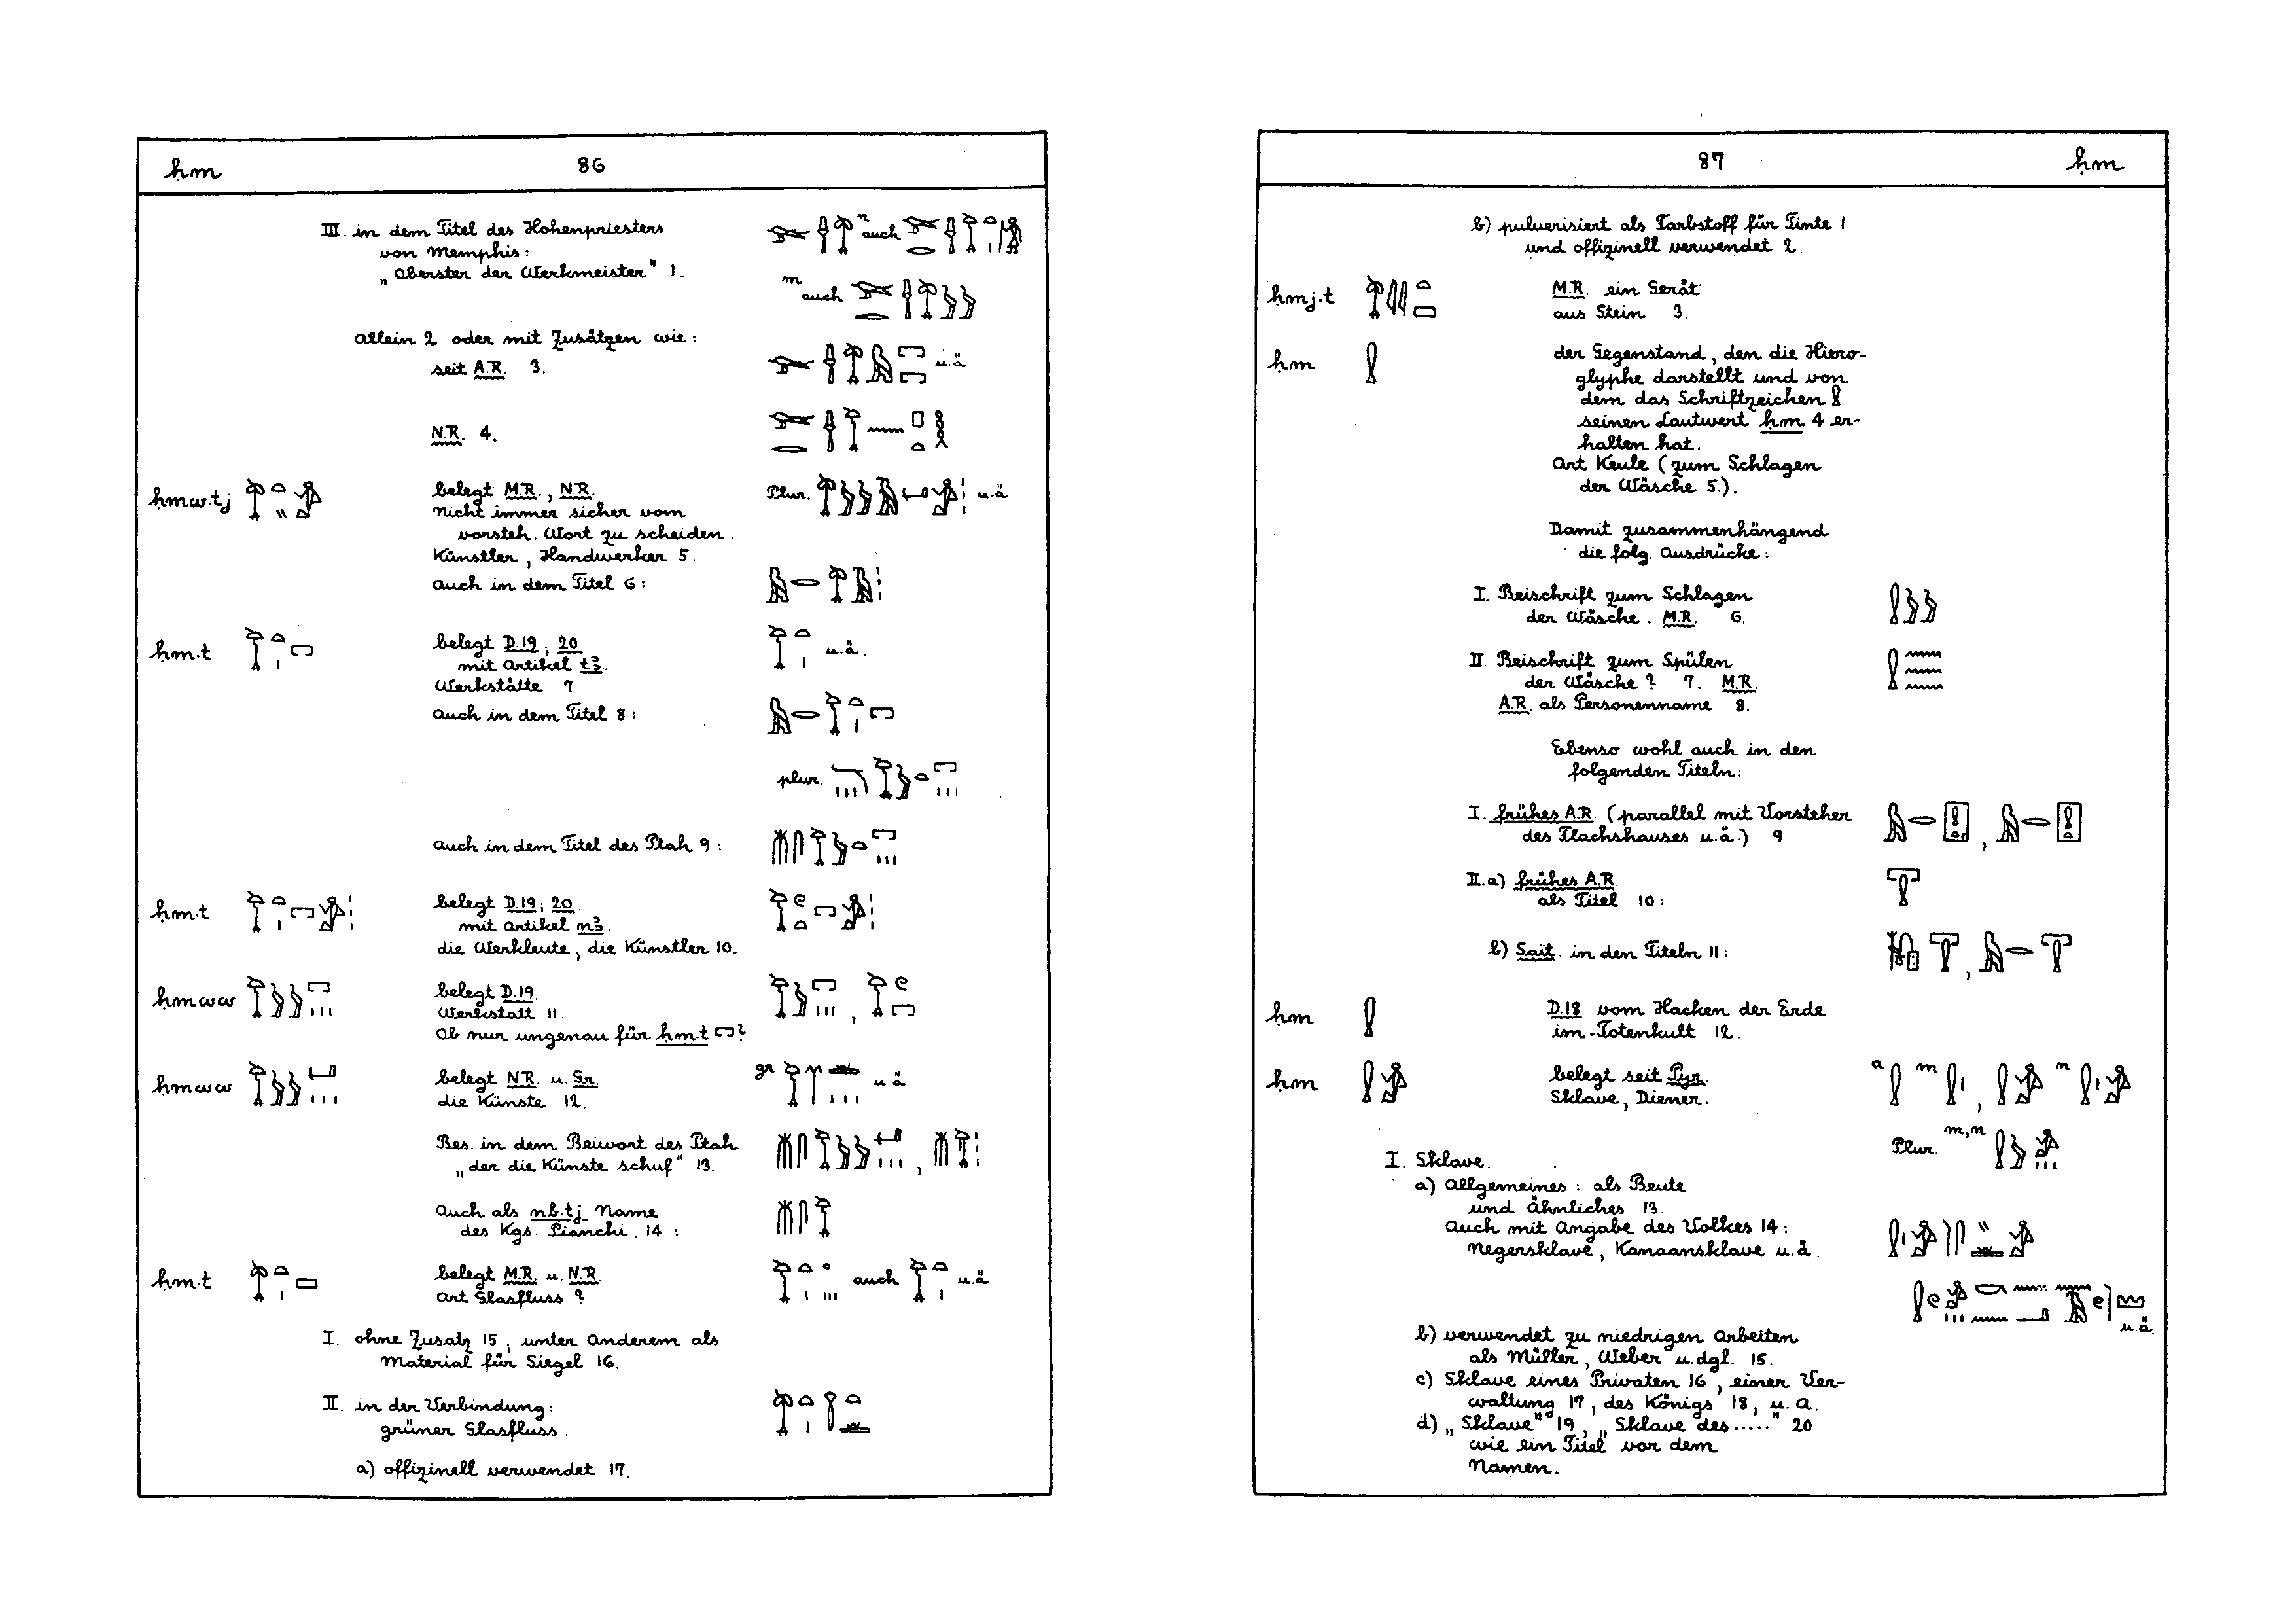 ḥm 86
III. in dem Titel des Hohenpriesters
von Memphis:
„Oberster der Werkmeister“ 1.
auch
auch
Allein 2 oder mit Zusätzen wie:
seit A.R. 3.
u.ä
N.R. 4.
ḥmw.tj
belegt M.R., N.R.
Nicht immer sicher vom
vorsteh. Wort zu scheiden.
Künstler, Handwerker 5.
Plur.
u.ä
auch in dem Titel 6:
ḥm.t
belegt D.19; 20.
mit Artikel tꜣ.
Werkstätte 7.
u.ä.
auch in dem Titel 8:
plur.
auch in dem Titel des Ptah 9:
ḥm.t
belegt D.19; 20.
mit Artikel nꜣ.
die Werkleute, die Künstler 10.
ḥmww
belegt D.19.
Werkstatt 11.
Ob nur ungenau für ḥm.t ?
ḥmww
belegt N.R. u. Gr.
die Künste 12.
gr
u.ä.
Bes. in dem Beiwort des Ptah
„der die Künste schuf“ 13.
Auch als nb.tj Name
des Kgs. Pianchi. 14:
ḥm.t
belegt M.R. u. N.R.
Art Glasfluss?
auch
u.ä
I. ohne Zusatz 15; unter Anderem als
Material für Siegel 16.
II. in der Verbindung:
grüner Glasfluss.
a) offizinell verwendet 17.
87 ḥm
b) pulverisiert als Farbstoff für Tinte 1
und offizinell verwendet 2.
ḥmj.t
M.R. ein Gerät
aus Stein 3.
ḥm
der Gegenstand, den die Hiero-
glyphe darstellt und von
dem das Schriftzeichen
seinen Lautwert ḥm 4 er-
halten hat.
Art Keule (zum Schlagen
der Wäsche 5.).
Damit zusammenhängend
die folg. Ausdrücke:
I. Beischrift zum Schlagen
der Wäsche. M.R. 6.
II. Beischrift zum Spülen
der Wäsche? 7. M.R.
A.R. als Personenname 8.
Ebenso wohl auch in den
folgenden Titeln:
I. frühes A.R. (parallel mit Vorsteher
des Flachshauses u.ä.) 9
II.a) frühes A.R.
als Titel 10:
b) Sait. in den Titeln 11:
ḥm
D.18 vom Hacken der Erde
im Totenkult 12.
ḥm
belegt seit Pyr.
Sklave, Diener.
a m n
Plur. m,n
I. Sklave.
a) Allgemeines: als Beute
und Ähnliches 13.
Auch mit Angabe des Volkes 14:
Negersklave, Kanaansklave u.ä.
u.ä.
b) verwendet zu niedrigen Arbeiten
als Müller, Weber u.dgl. 15.
c) Sklave eines Privaten 16, einer Ver-
waltung 17, des Königs 18, u. a.
d) „Sklave“ 19, „Sklave des.....“ 20
wie ein Titel vor dem
Namen.